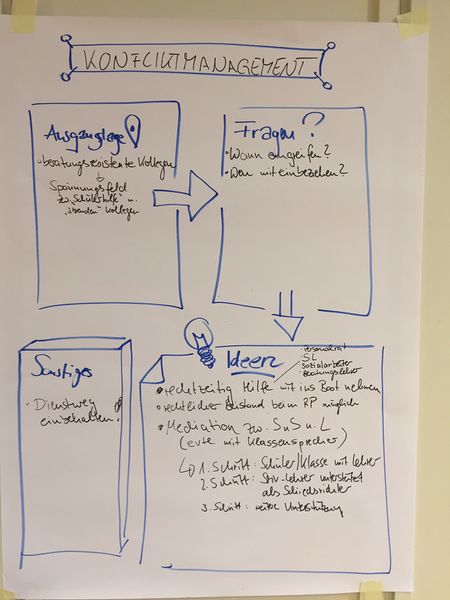 KONFLIKTMANAGEMENT
Ausgangslage
• beratungsresistente Kollegen
Spannungsfeld
zw. "Schülerhilfe" u.
Kollegen
Fragen ?
• Wann eingreifen?
• Wen miteinbeziehen?
Sonstiges
• Dienstweg
einzuhalten!
Ideen
Personalrat
SL
Sozialarbeiter
Beratungslehrer
• rechtzeitig Hilfe mit ins Boot nehmen
• rechtlicher Beistand beim RP möglich
• Mediation zw. SuS u. L
(evtl. mit Klassensprecher)
1. Schritt: Schüler/Klasse mit Lehrer
2. Schritt: Stv.-Lehrer unterstützt
als Schiedsrichter
3. Schritt: weitere Unterstützung